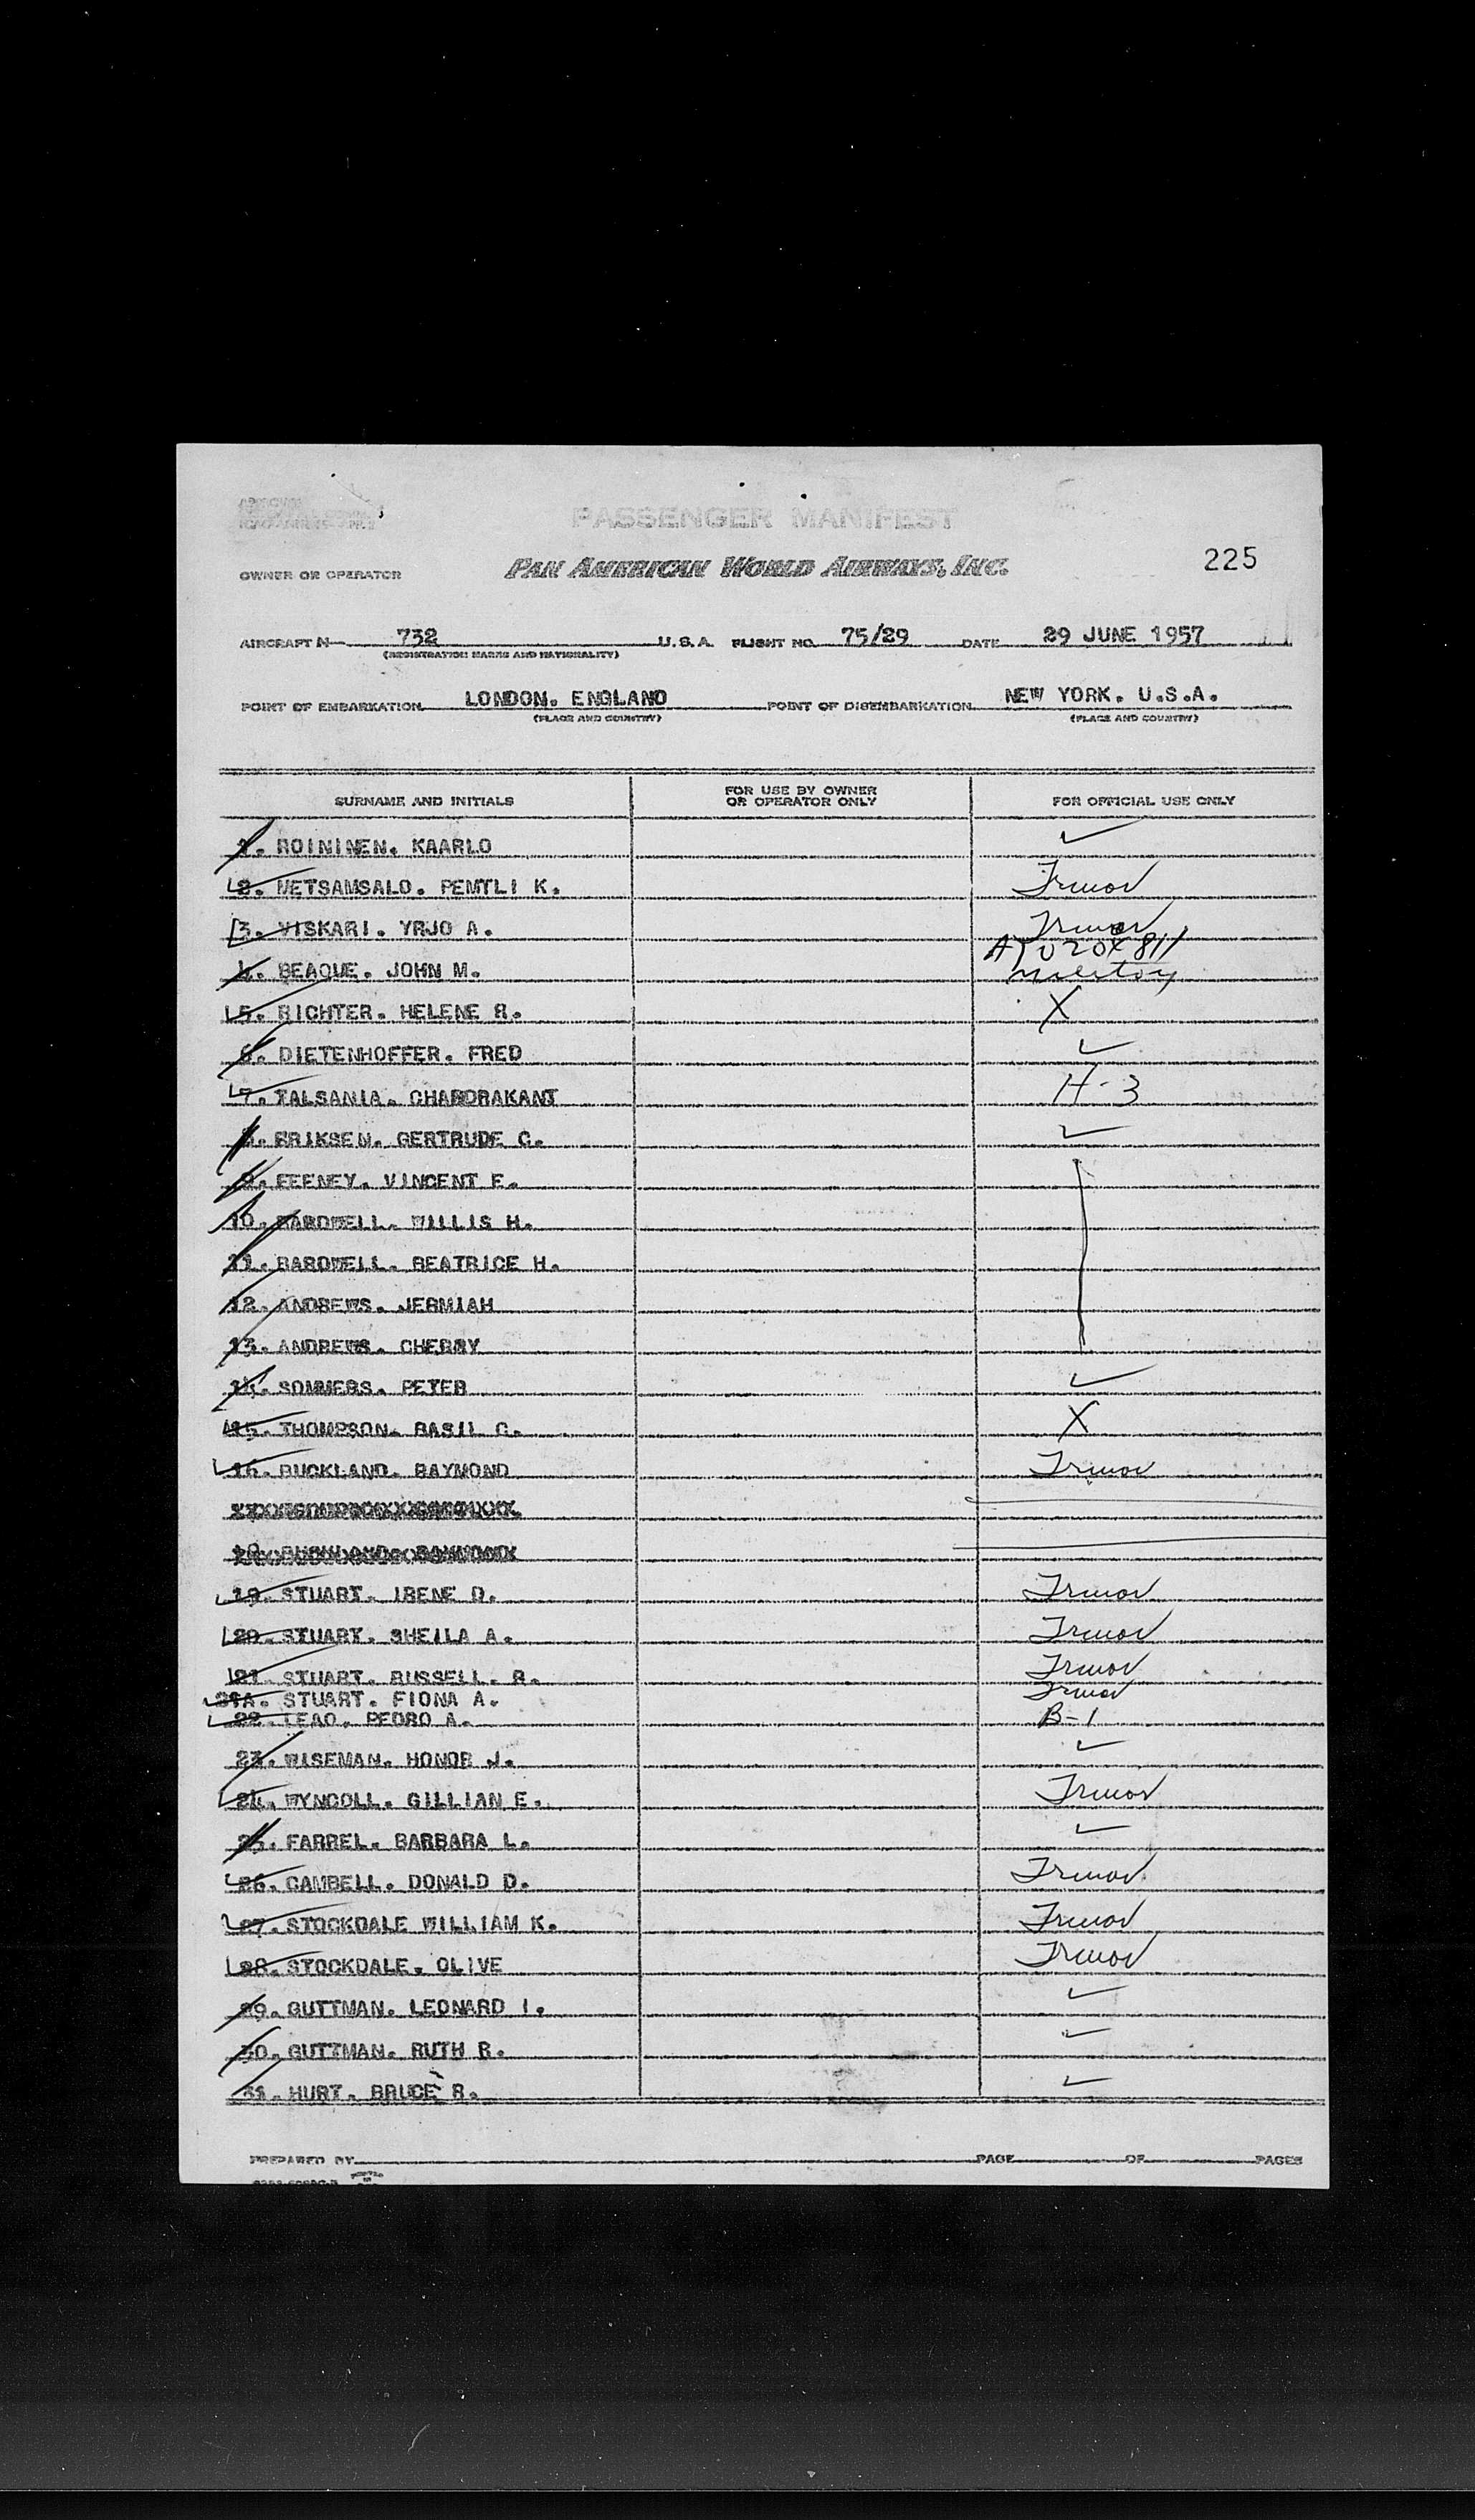 PASSENGER MANIFEST
OWNER OR OPERATOR PAN AMERICAN WORLD AIRWAYS, INC. 225
AIRCRAFT N 732 U.S.A. FLIGHT NO. 75/29 DATE 29 JUNE 1957
(REGISTRATION MARKS AND NATIONALITY)
POINT OF EMBARKATION LONDON. ENGLAND POINT OF DISEMBARKATION NEW YORK. U.S.A.
(PLACE AND COUNTRY) (PLACE AND COUNTRY)
SURNAME AND INITIALS FOR USE BY OWNER OR OPERATOR ONLY FOR OFFICIAL USE ONLY
1. ROININEN. KAARLO ✓
2. METSAMSALO. PEMTLI K.
3. VISKARI. YRJO A.
4. BEAQUE. JOHN M.
5. RICHTER. HELENE R. X
6. DIETENHOFFER. FRED ✓
7. TALSANIA. CHANDRAKANT H-3
8. ERIKSEN. GERTRUDE C. ✓
9. FEENEY. VINCENT E.
10. BARDWELL. WILLIS H.
11. BARDWELL. BEATRICE H.
12. ANDREWS. JERMIAH
13. ANDREWS. CHERRY
14. SOMMERS. PETER ✓
15. THOMPSON. BASIL G. X
16. BUCKLAND. RAYMOND
19. STUART. IRENE D.
20. STUART. SHEILA A.
21. STUART. RUSSELL. R.
21A. STUART. FIONA A.
22. LEAO. PEDRO A. B-1
23. WISEMAN. HONOR J. ✓
24. WYNCOLL. GILLIAN E.
25. FARREL. BARBARA L. ✓
26. CAMBELL. DONALD D.
27. STOCKDALE WILLIAM K.
28. STOCKDALE. OLIVE
29. GUTTMAN. LEONARD I. ✓
30. GUTTMAN. RUTH R. ✓
31. HURT. BRUCE R. ✓
PREPARED BY PAGE OF PAGES